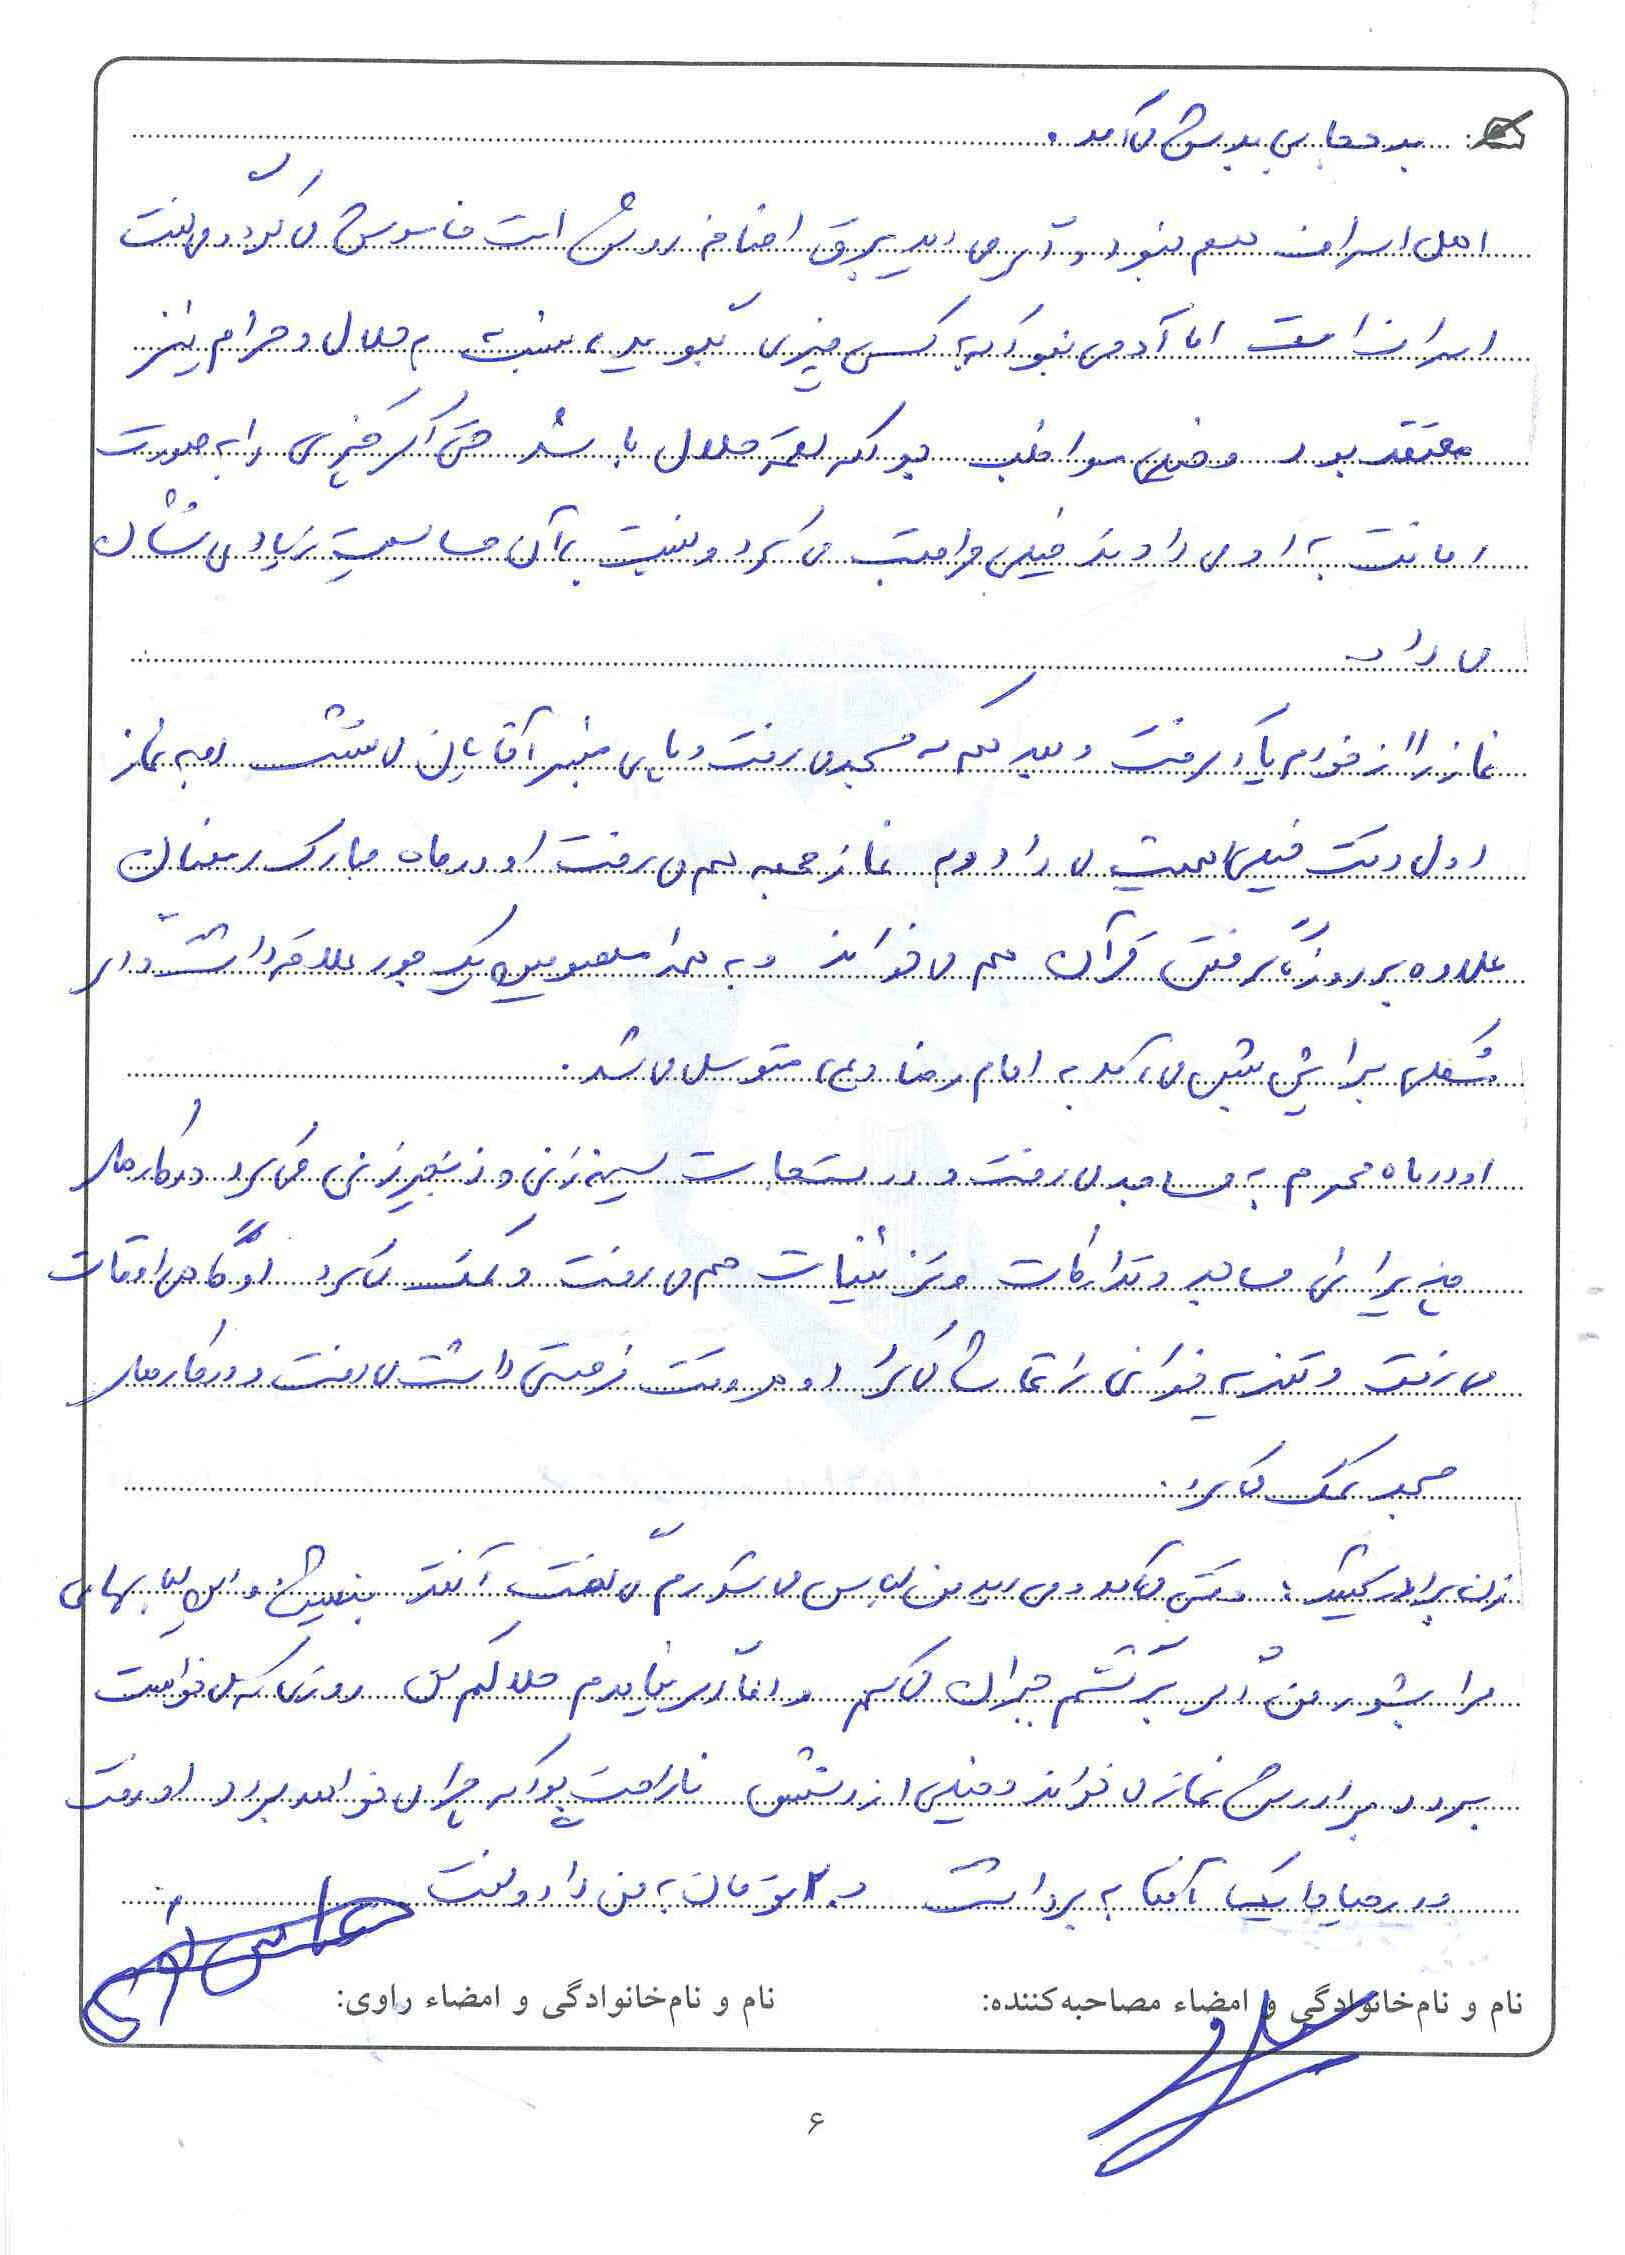 بدحجابی بدش می‌آمد.
اهل اسراف هم نبود و اگر می دید برق اضافه روشن است خاموش می کرد و می گفت
اسراف است اما آدمی نبود که به کسی چیزی بگوید، نسبت به حلال و حرام نیز
معتقد بود و خیلی مواظب بود که لقمه حلال باشد حتی اگر چیزی را به صورت
امانت به او می دادند خیلی مراقبت می کرد و نسبت به آن حساسیت زیادی نشان
می داد.
نماز را از خودم یاد گرفت و بعد هم به مسجد می رفت و پای منبر آقایان می نشست و به نماز
اول وقت خیلی اهمیت می داد و به نماز جمعه هم می رفت او در ماه مبارک رمضان
علاوه بر روزه گرفتن قرآن هم می خواند و به همه معصومین یک جور علاقه داشت و اگر
مشکلی برایش پیش می آمد به امام رضا (ع) متوسل می شد.
او در ماه محرم به مساجد می رفت و در دستجات سینه زنی و زنجیرزنی می کرد در کارهای
پذیرایی مساجد و تدارکات و تزئینات هم می رفت و کمک می کرد او گاهی اوقات
می رفت و تعزیه خوانی را تماشا می کرد او هر وقت فرصتی داشت می رفت و در کارهای
مسجد کمک می کرد.
زن برادر شهید: وقتی می آمد و می دید من لباس می شورم می گفت آنقدر بنشین و این لباسهای
مرا بشور من اگر برگشتم جبران می کنم و اما اگر نیامدم حلالم کن روزی که می خواست
برود برادرش نماز می خواند و خیلی از دستش ناراحت بود که چرا می خواهد برود او رفت
در حیاط یک آفتابه برداشت و ۲۰ تومان به من داد و گفت
نام و نام‌خانوادگی و امضاء مصاحبه‌کننده: نام و نام‌خانوادگی و امضاء راوی:
۶